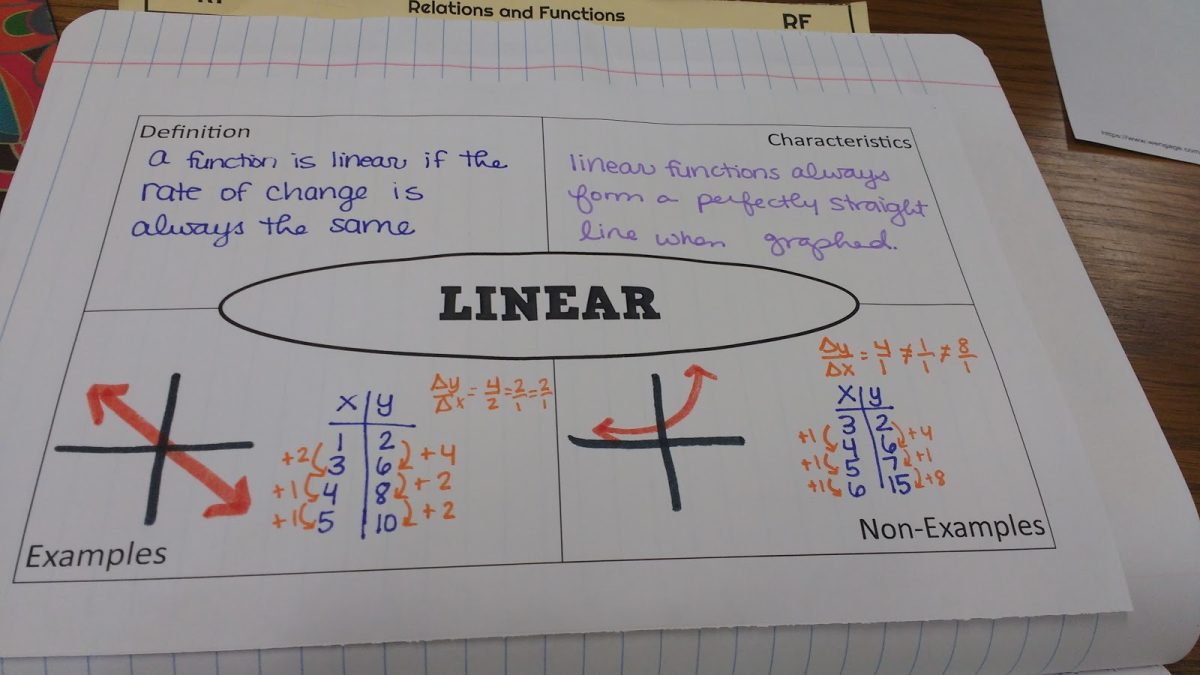 Relations and Functions
RF
https://www.wengage.com
Definition
a function is linear if the
rate of change is
always the same
Characteristics
linear functions always
form a perfectly straight
line when graphed.
LINEAR
Δy/Δx = 4/2 = 2/1 = 2/1
x | y
1 | 2
3 | 6
4 | 8
5 | 10
+2
+1
+1
+4
+2
+2
Examples
Δy/Δx = 4/1 ≠ 1/1 ≠ 8/1
x | y
3 | 2
4 | 6
5 | 7
6 | 15
+1
+1
+1
+4
+1
+8
Non-Examples